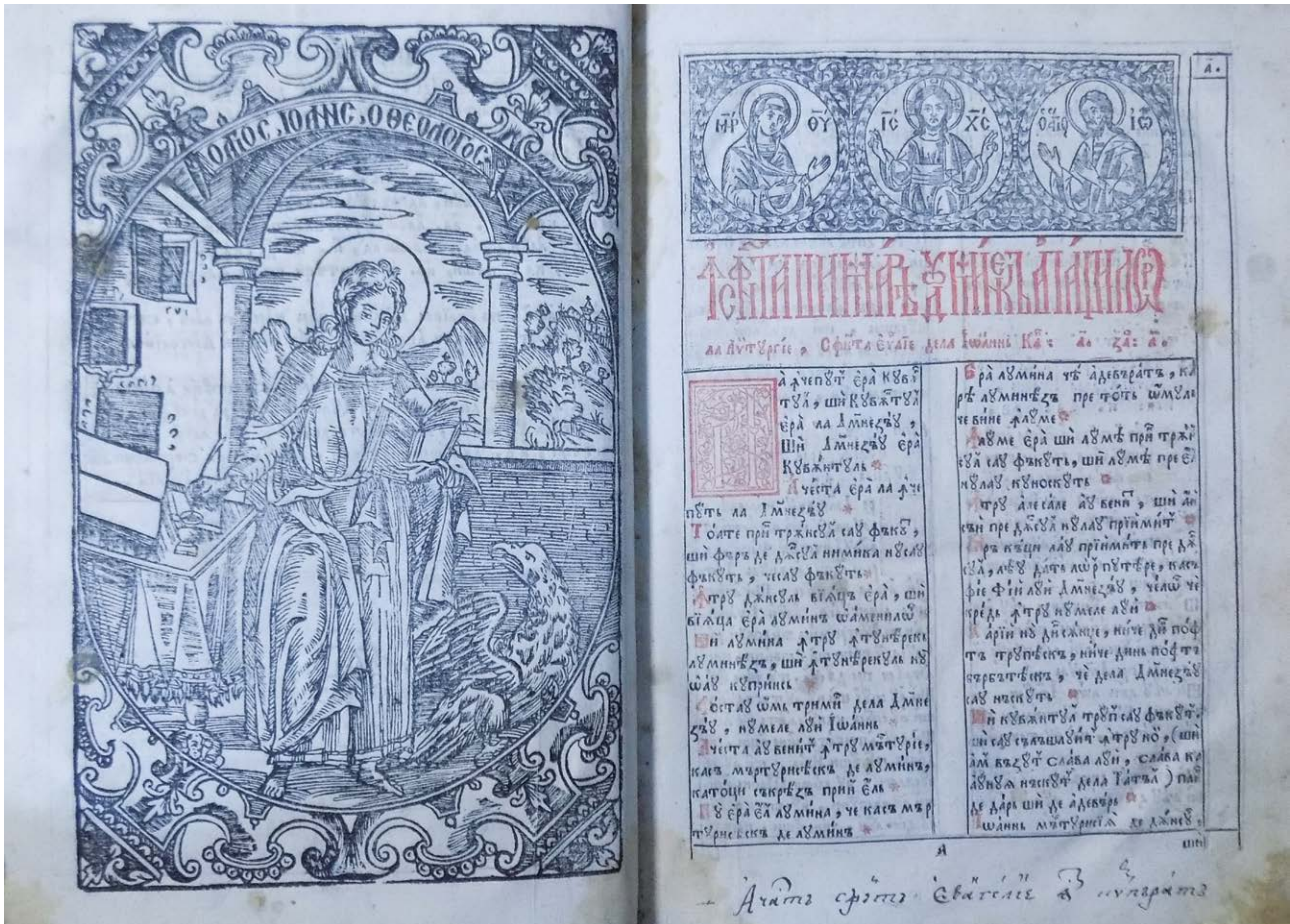 Ο ΑΓΙΟС, ΙΟΑΝΙС, Ο ΘΕΟΛΟΓΟС
а҃.
М҃Р Ѳ҃У І҃С Х҃С ІѠ
ла Лѵтꙋргіе, Сф҃нта Єѵ҃ліе дела Іѡаннь Ка҃: а҃. за҃: а҃.
Ла ꙟчепꙋт ера кꙋвѫ
тꙋл, ши Кꙋвѫнтꙋл
ера ла Дм҃незѣꙋ,
Ши Дм҃незѣꙋ ера
Кꙋвѫнтꙋль
Ачеста ера ла ꙟче
пꙋть ла Дм҃незѣꙋ
Тоате прин трѫнсꙋл сау фъкꙋт,
ши фъръ де дѫнсꙋл нимика нꙋ сау
фъкꙋть, че сау фъкꙋть
Ꙟтрꙋ дѫнсꙋль віацъ ера, ши
віаца ера лꙋмина ѡаменилѡр
Ши лꙋмина ꙟтрꙋ ꙟтꙋнѣрекь
лꙋминѣзъ, ши ꙟтꙋнѣрекꙋль нꙋ
ѡ аꙋ кꙋпринсь
Фостаꙋ ѡмь тримис дела Дм҃не
зѣꙋ, нꙋмеле лꙋи Іѡаннь
Ачеста аꙋ венит ꙟтрꙋ мъртꙋріе,
кась мъртꙋрисѣскъ де лꙋминъ,
ка тоци съ крѣзъ прин Ель
Нꙋ ера Ел лꙋмина, че кась мър
тꙋрисѣскъ де лꙋминъ
Ера лꙋмина чѣ адевъратъ, ка
рѣ лꙋминѣзъ пре тоть ѡмꙋл
че вине ꙟ лꙋме
Ꙟ лꙋме ера ши лꙋмѣ прин трѫн
сꙋл сау фъкꙋть, ши лꙋмѣ пре Ел
нꙋлаꙋ кꙋноскꙋть
Ꙟтрꙋ але сале аꙋ венит, ши аи
съи пре дѫнсꙋл нꙋлаꙋ приимит
Іаръ къци лаꙋ приимить пре дѫн
сꙋл, лѣꙋ дать лѡр пꙋтѣре, кась
фіе Фіи лꙋи Дм҃незѣꙋ, челѡр че
кредь ꙟтрꙋ нꙋмеле лꙋи
Карии нꙋ дин сѫнџе, ниче дин поф
тъ трꙋпѣскъ, ниче динь пофтъ
бърбътѣскъ, че дела Дм҃незѣꙋ
саꙋ нъскꙋть
Ши кꙋвѫнтꙋл трꙋп саꙋ фъкꙋт,
ши саꙋ сълъшлꙋит ꙟтрꙋ нои, (ши
ам възꙋт слава лꙋи, слава ка
а ꙋнꙋіа нъскꙋт дела Татъл) плин
де дарь ши де адевърь
Іѡаннь мъртꙋрисіѧ де дѫнсꙋл,
А
ши